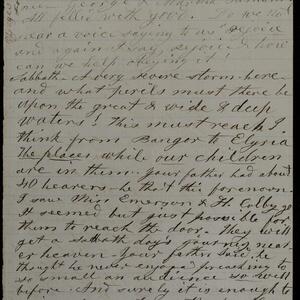 love George &
all filled with you. Do we not
hear a voice saying to us "rejoice
and again I say, rejoice," & how
can we help obeying it!
Sabbath - A very severe storm here
and what perils must there be
upon the great & wide & deep
waters! This must reach I
think from Bangor to Elyria
The places while our children
are in them. Your father had about
40 hearers - he that this forenoon
I saw Miss Emerson & H. Colby go
It seemed but just possible for
them to reach the door. They will
get a sabbath day's journey near
er heaven. Your father said, he
thought he never enjoyed preaching to
so small an audience so well
before. And surely it is enough to